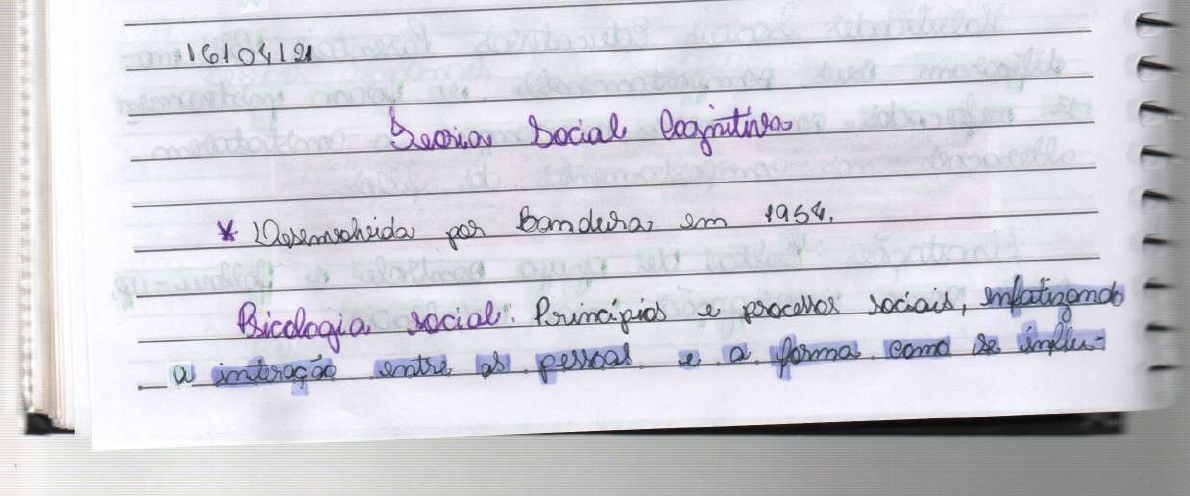 16/04/21
Teoria Social Cognitiva
* Desenvolvida por Bandura em 1954.
Psicologia social: Princípios e processos sociais, enfatizando
a interação entre as pessoas e a forma como se influ-